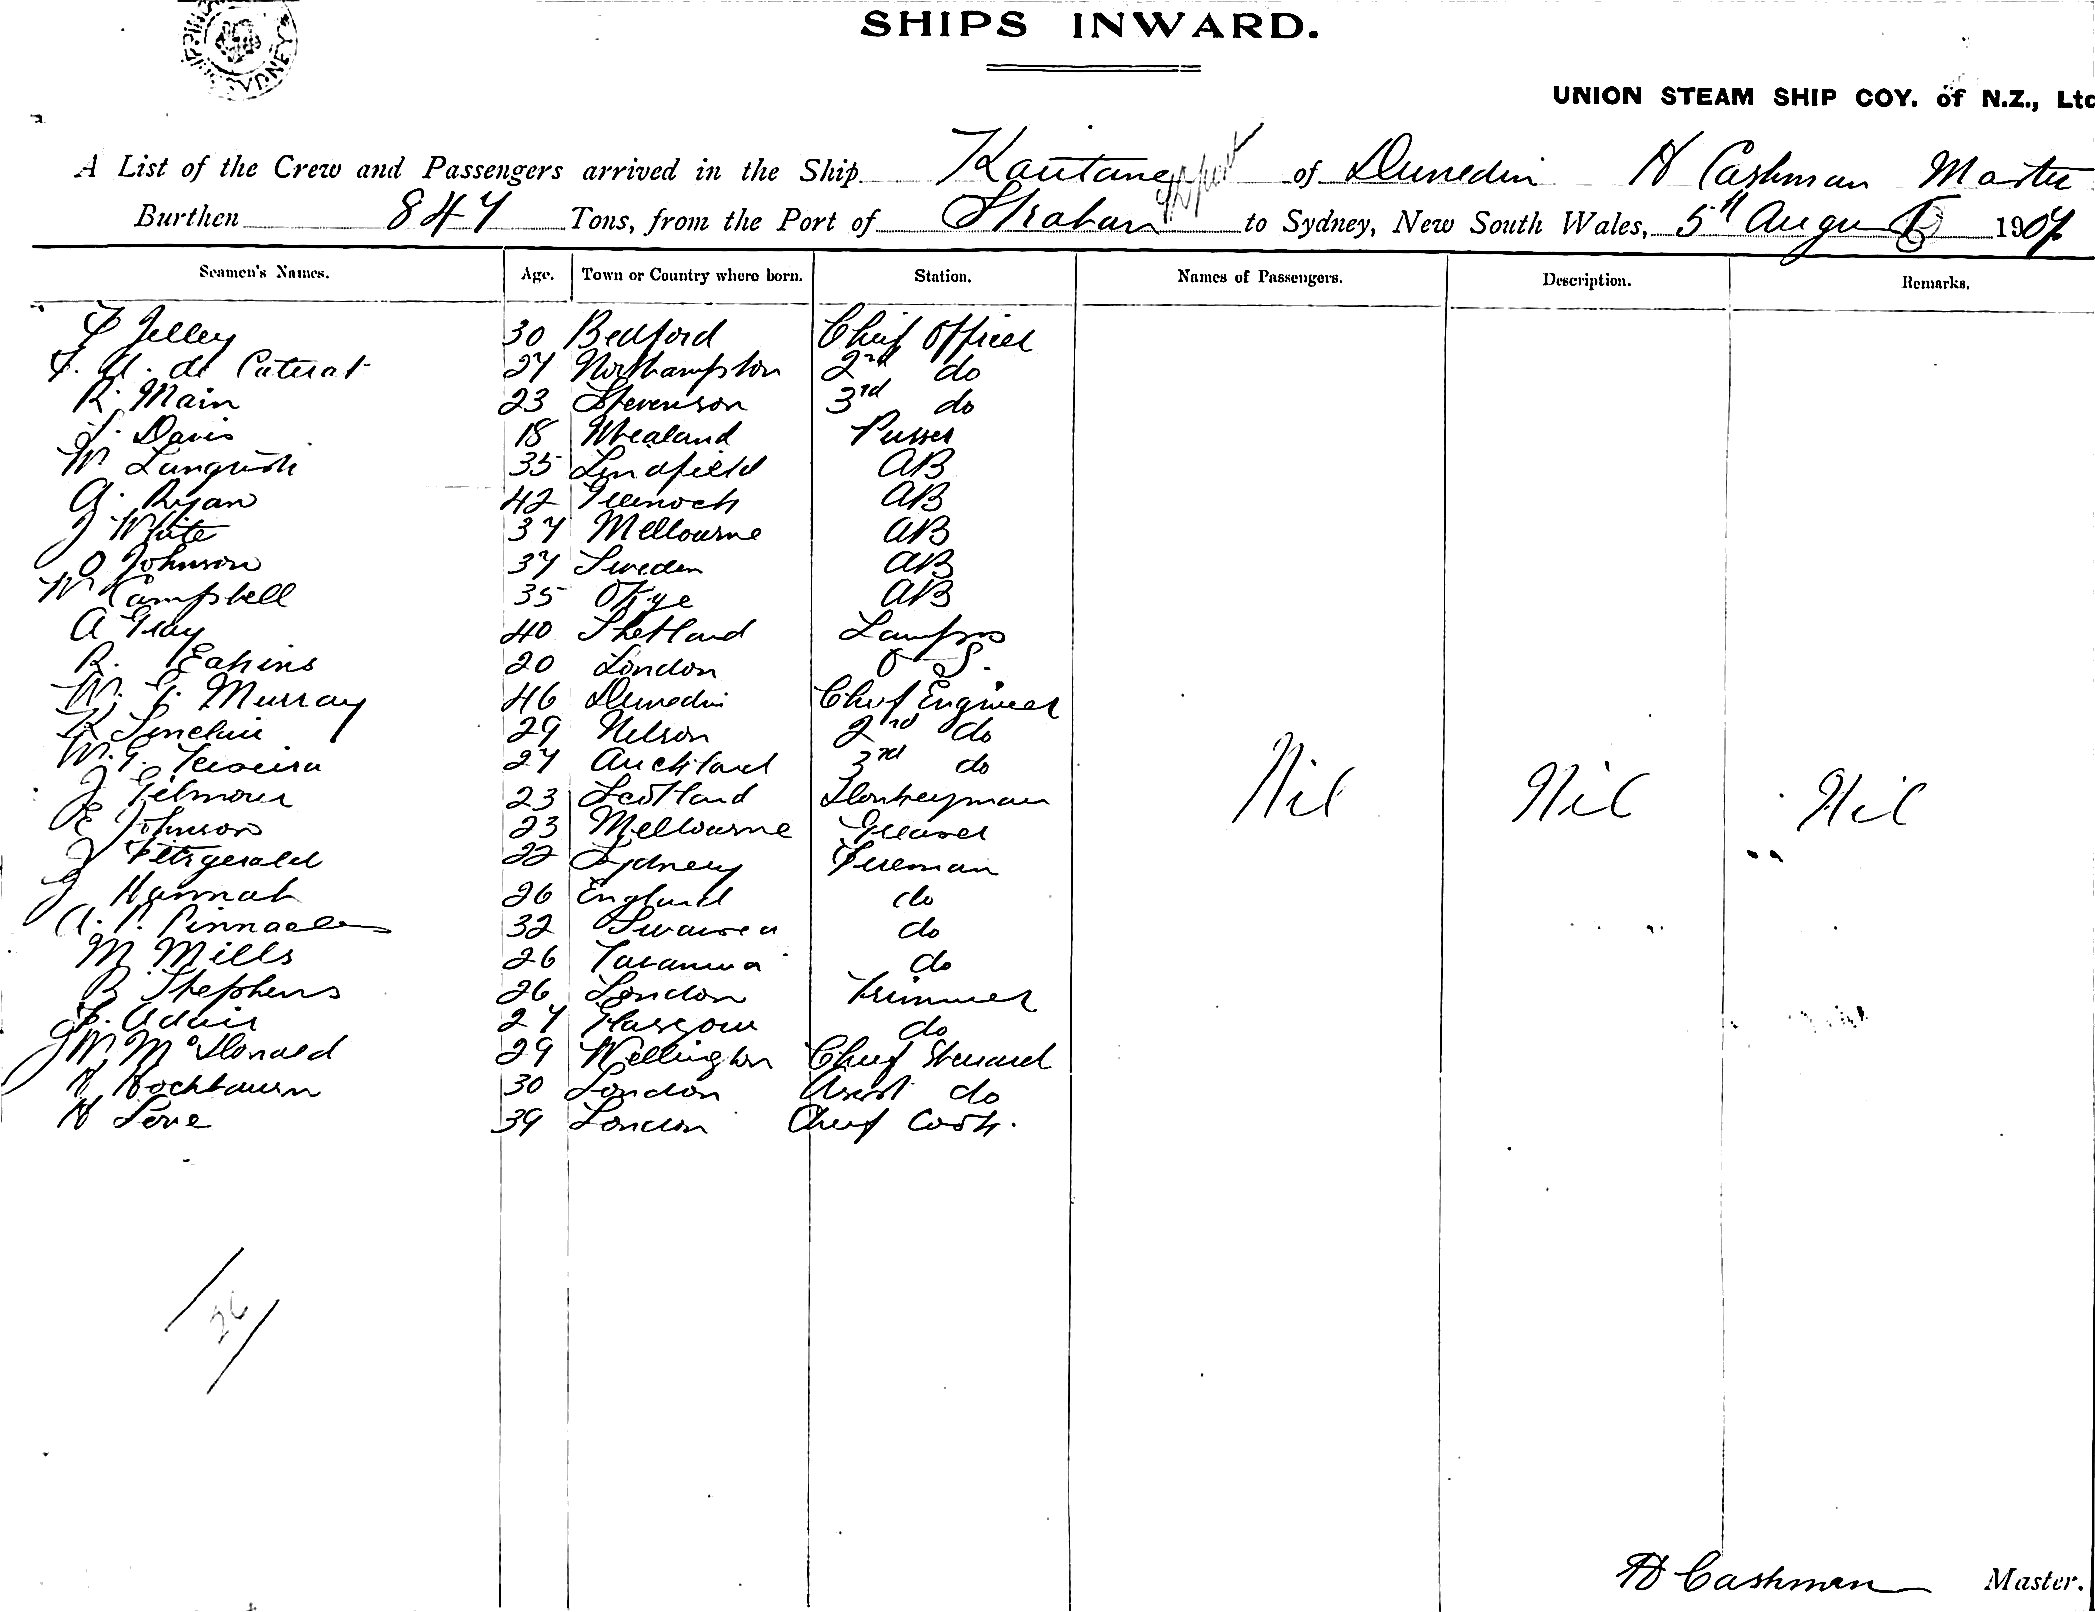 SHIPS INWARD.
UNION STEAM SHIP COY. of N.Z., Ltd
A List of the Crew and Passengers arrived in the Ship Kaitangata of Dunedin H Cashman Master
Burthen 847 Tons, from the Port of Strahan to Sydney, New South Wales, 5th August 1907
Seamen's Names. Age. Town or Country where born. Station. Names of Passengers. Description. Remarks.
F Jelley 30 Bedford Chief Officer
27 Northampton 2nd do
R. Main 23 Stevenson 3rd do
J. Davis 18 Purser
W Languish 35 Lindfield AB
G. Ryan 42 Greenock AB
J White 37 Melbourne AB
O Johnson 37 Sweden AB
W Campbell 35 Skye AB
A Gray 40 Shetland Lamps
R. Eakins 20 London O S.
W. G. Murray 46 Dunedin Chief Engineer
R Sinclair 29 Nelson 2nd do
W. G. Teixeira 27 Auckland 3rd do
J Gilmour 23 Scotland Donkeyman
E Johnson 23 Melbourne Greaser
J Fitzgerald 22 Sydney Fireman
J Hannah 26 England do
A. P. Pinnacle 32 Swansea do
M Mills 26 Tasmania do
B Stephens 26 London Trimmer
F. Adair 27 Glasgow do
J W McDonald 29 Wellington Chief Steward
H Hochbaum 30 London Asst do
H Love 39 London Chief Cook.
Nil Nil Nil
26
H Cashman Master.